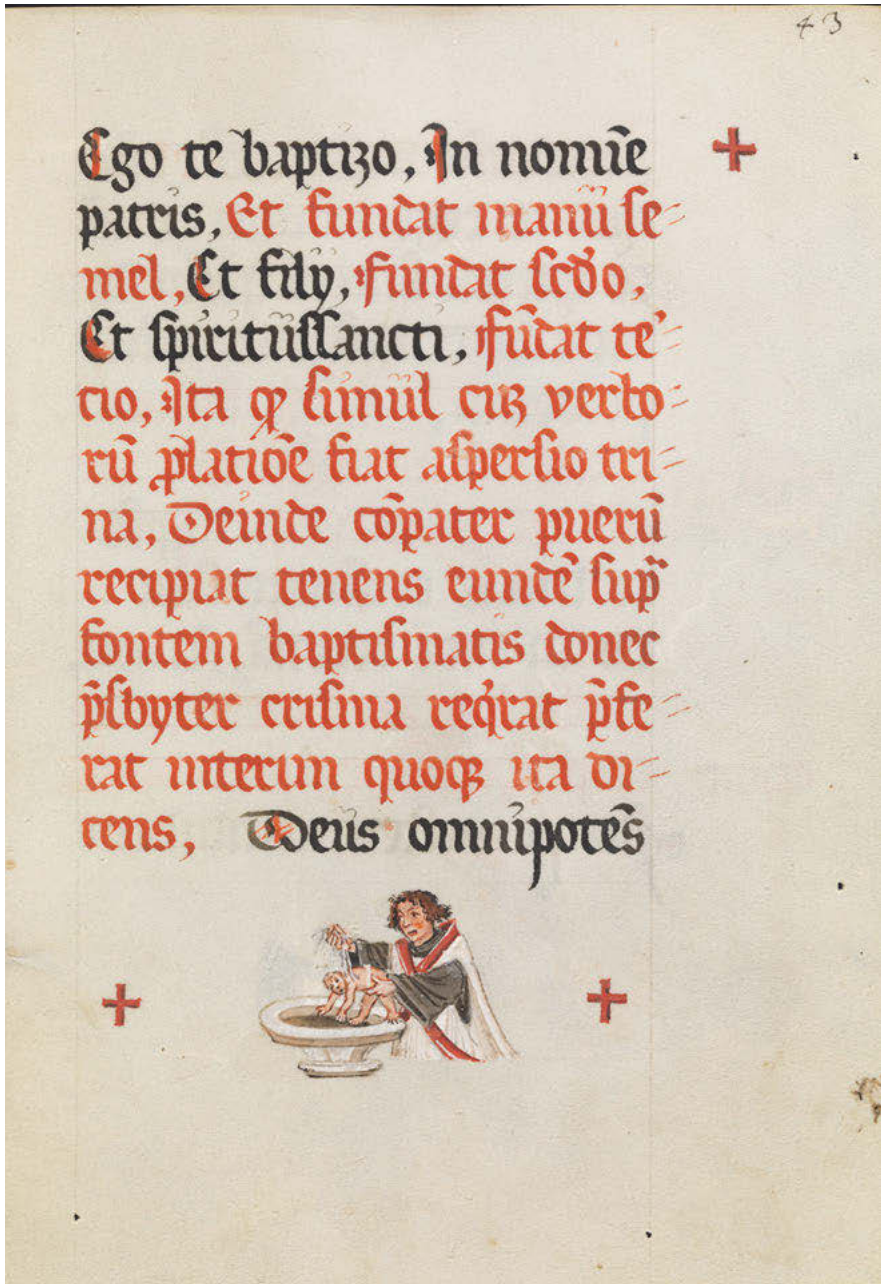 43
Ego te baptizo, In nomīe
patris, Et fundat manū se=
mel, Et filij, fundat scd̄o,
Et spiritussancti, fūdat te͛=
tio, Ita qȝ simul cuȝ verbo=
rū ꝓlatiōe fiat aspersio tri=
na, Deinde cōpater puerū
recipiat tenens eundē sup̄
fontem baptismatis donec
p̄sbyter crisma req͛rat p̄fe=
rat interim quoqȝ ita di=
cens, Deus omnipotēs